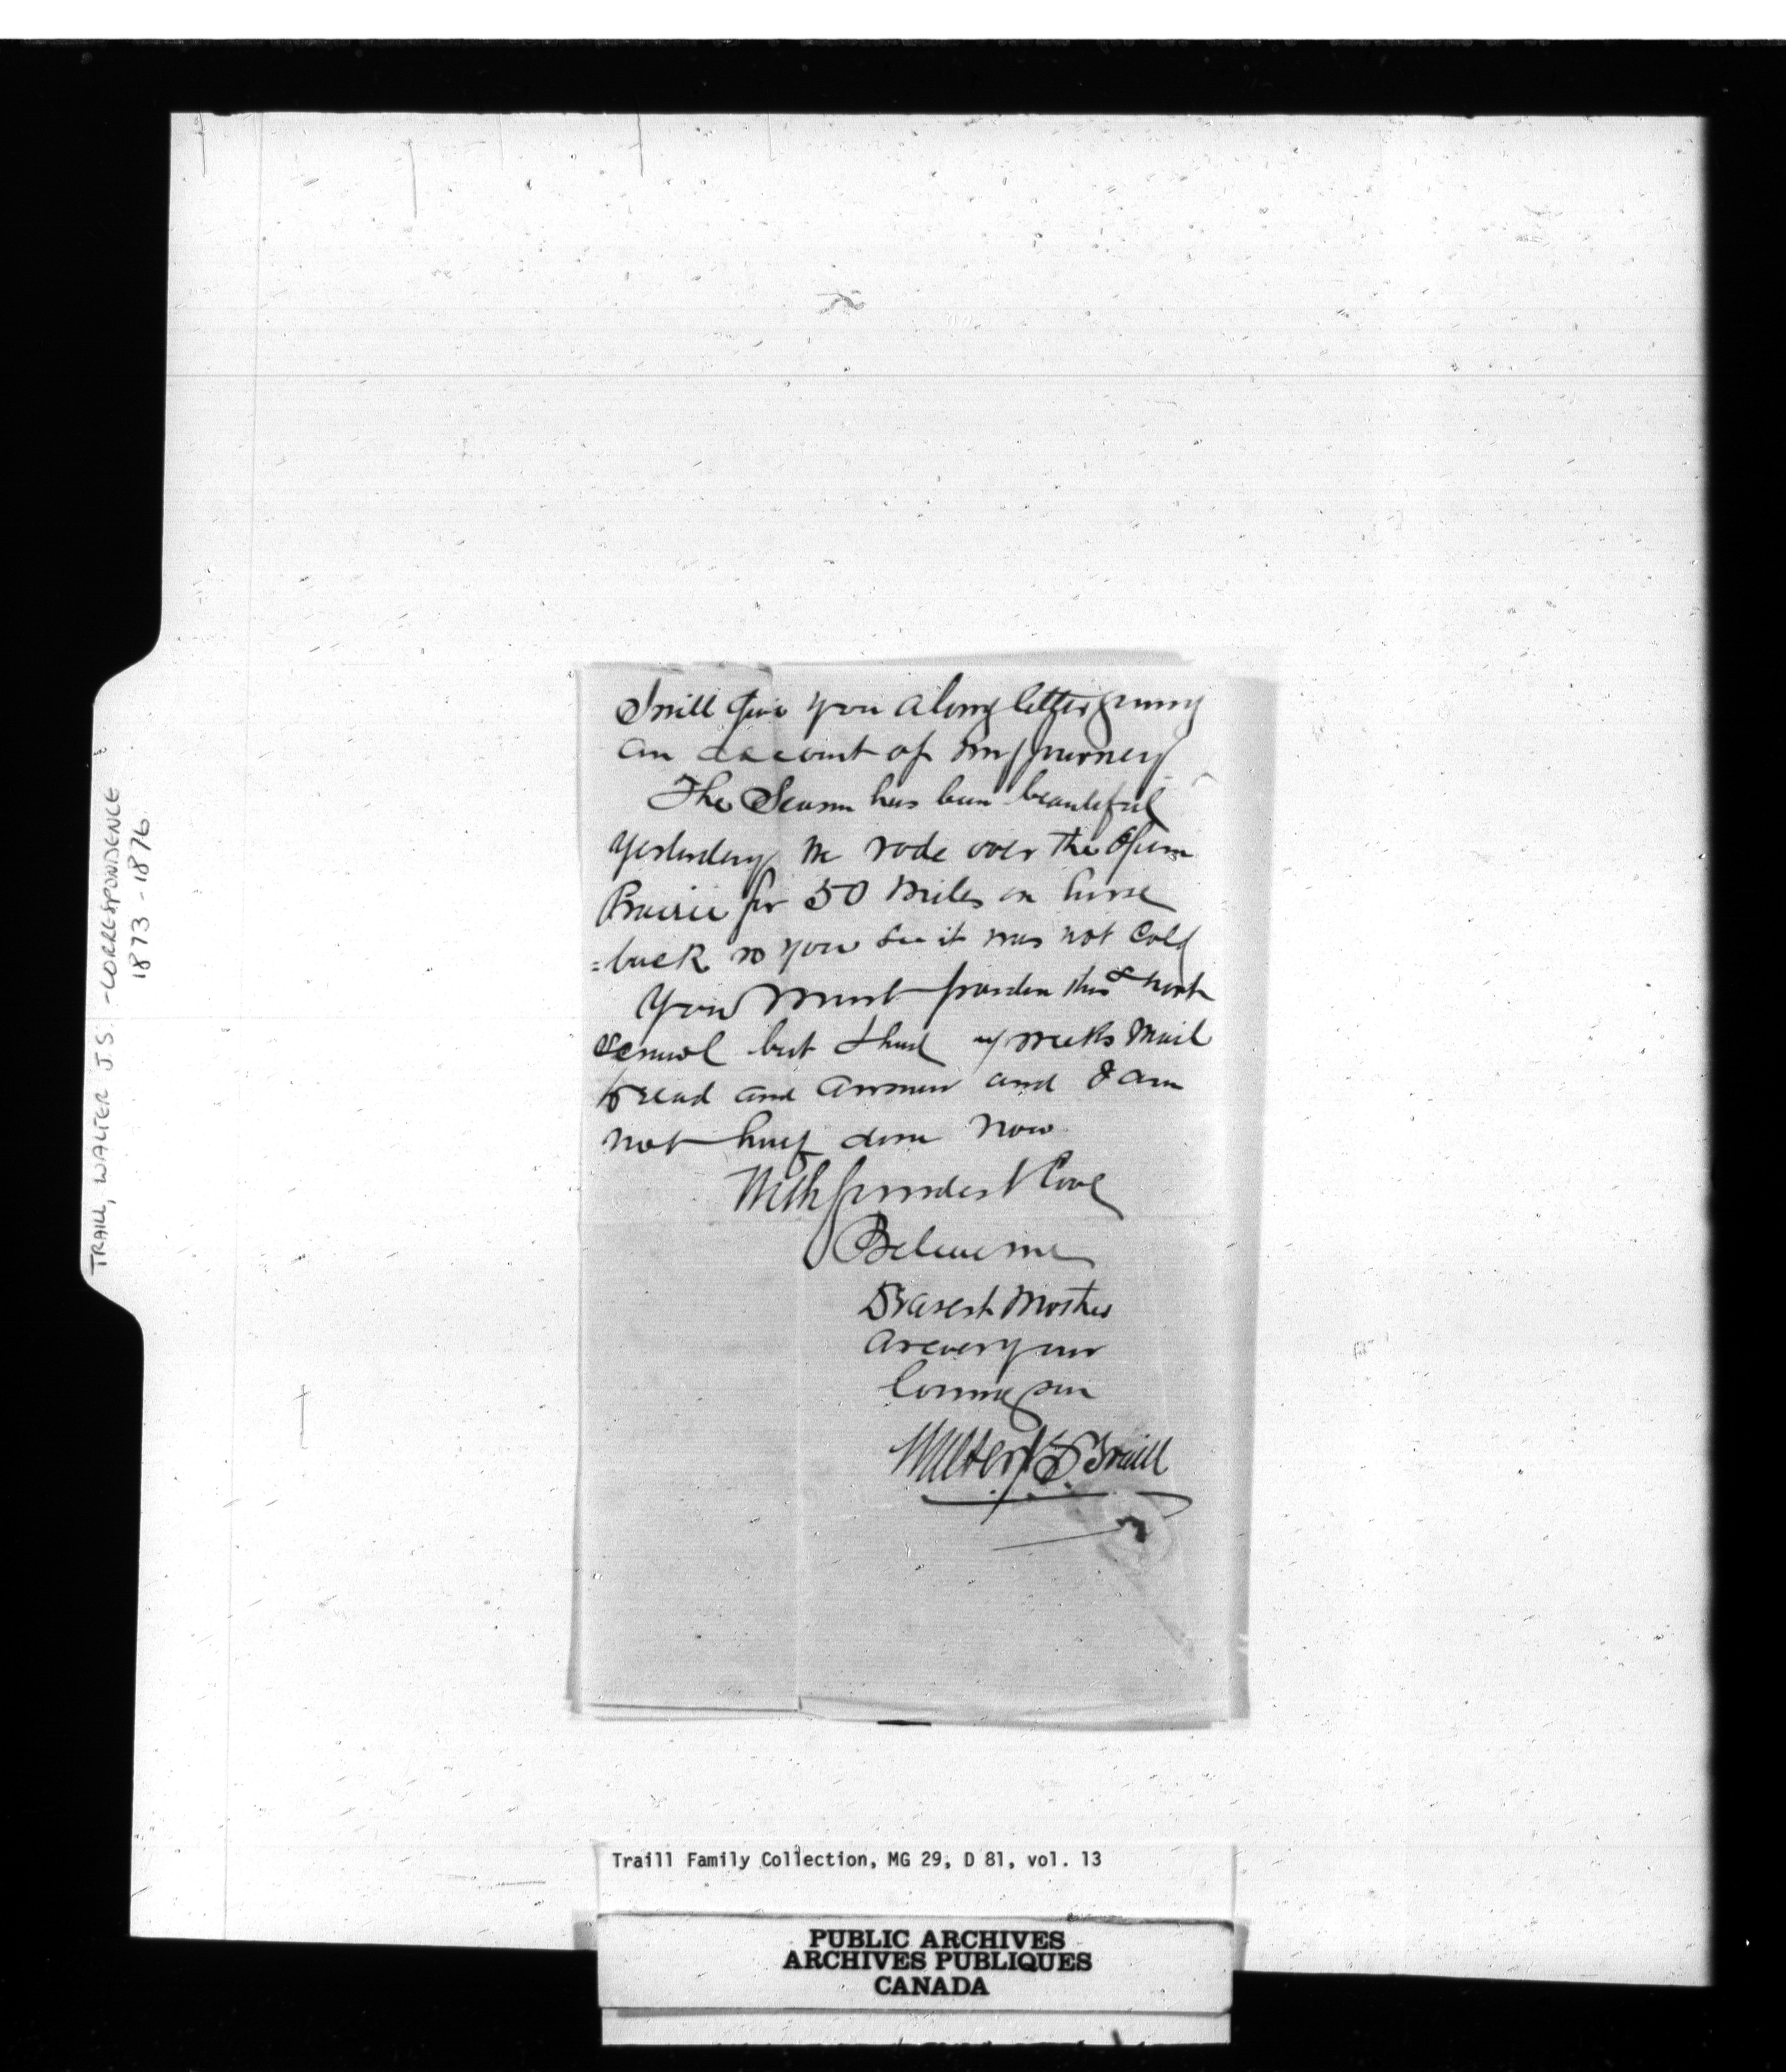 I will give you a long letter giving
an account of my journey
The Season has been beautiful
Yesterday we rode over the Open
Prairie for 50 miles on horse
=back so you see it was not Cold
You must pardon this short
scrawl but I had weeks Mail
to read and answer and I am
not half done now
With fondest love
Believe me
Dearest Mother
as ever your
loving son
Walter J S Traill
TRAILL, WALTER J S. - CORRESPONDENCE
1873 - 1876
Traill Family Collection, MG 29, D 81, vol. 13
PUBLIC ARCHIVES
ARCHIVES PUBLIQUES
CANADA